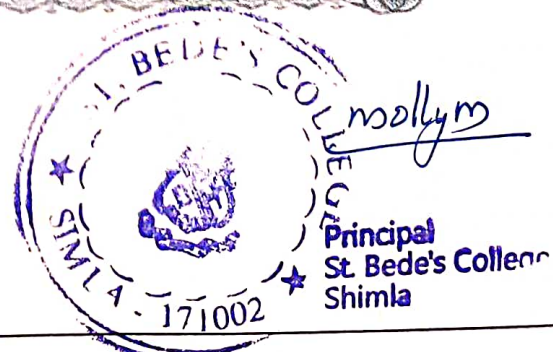 ST. BEDE'S COLLEGE
SIMLA - 171002
mollym
Principal
St. Bede's College
Shimla